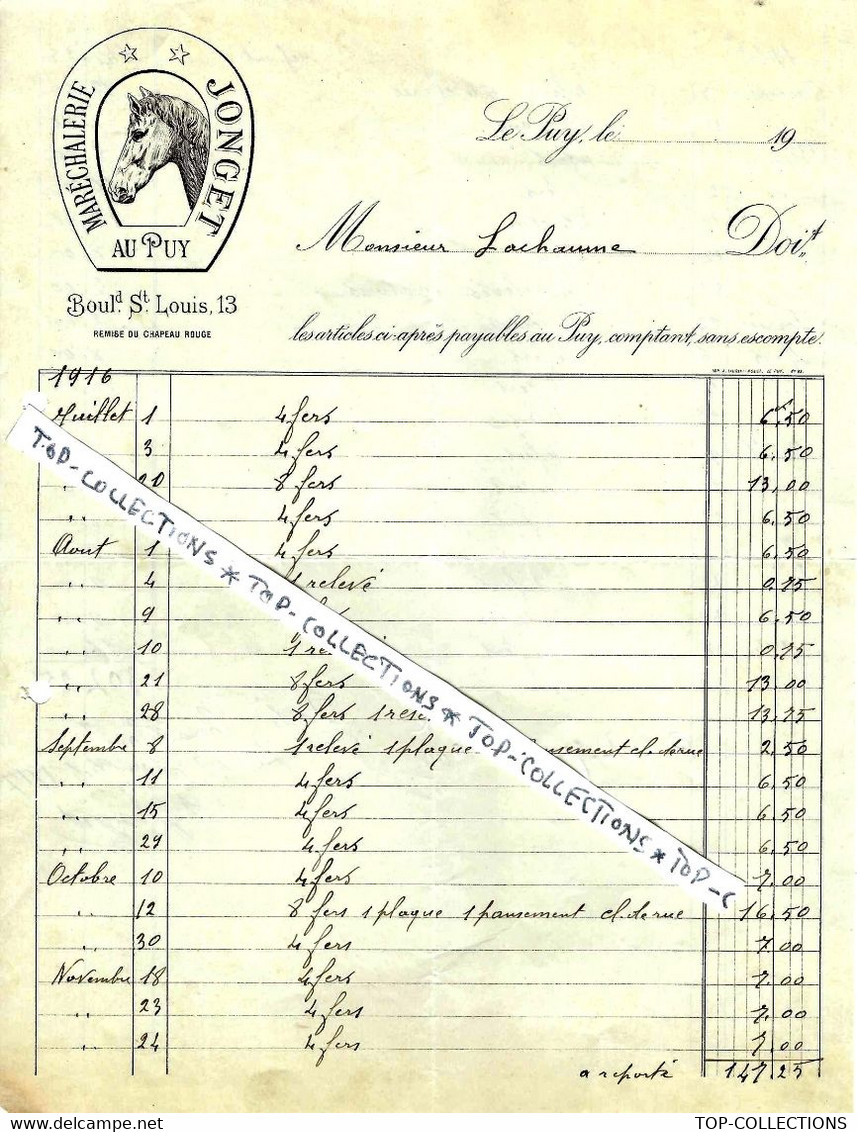 MARÉCHALERIE JONGET
AU PUY
Boul.d St. Louis, 13
REMISE DU CHAPEAU ROUGE
Le Puy, le 19
Monsieur Lachaume Doit
les articles ci-après payables au Puy, comptant, sans escompte.
1916
Juillet 1 4 fers 6,50
3 4 fers 6,50
20 8 fers 13,00
" 4 fers 6,50
Aout 1 4 fers 6,50
" 4 1 relevé 0,75
" 9 6,50
" 10 1 0,75
" 21 8 fers 13,00
" 28 8 fers 1 13,75
Septembre 8 1 relevé 1 plaque pansement cl. de rue 2,50
" 11 4 fers 6,50
" 15 4 fers 6,50
" 29 4 fers 6,50
Octobre 10 4 fers 7,00
" 12 8 fers 1 plaque 1 pansement cl. de rue 16,50
" 30 4 fers 7,00
Novembre 18 4 fers 7,00
" 23 4 fers 7,00
" 24 4 fers 7,00
a reporté 147,25
TOP-COLLECTIONS * TOP-COLLECTIONS * TOP-COLLECTIONS * TOP-C
TOP-COLLECTIONS